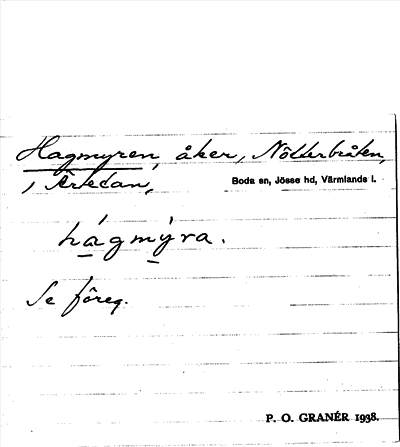 Hagmyren, åker, Nötterbråten,
1 Årtedan,
Boda sn, Jösse hd, Värmlands l.
hágmýra.
Se föreg.
P. O. GRANÉR 1938.